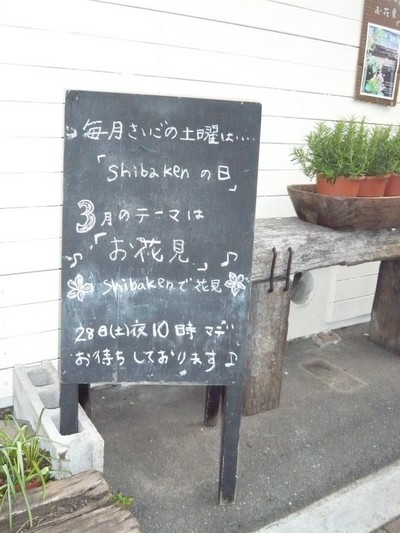 毎月さいごの土曜は‥‥
「shibaken の日」
3月のテーマは
「お花見」♪
shibakenで花見
28日(土)夜10時マデ
お待ちしております♪
お花見